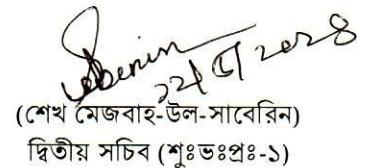 ১২/৫/২০২৪
(শেখ মেজবাহ-উল-সাবেরিন)
দ্বিতীয় সচিব (শুঃভঃপ্রঃ-১)